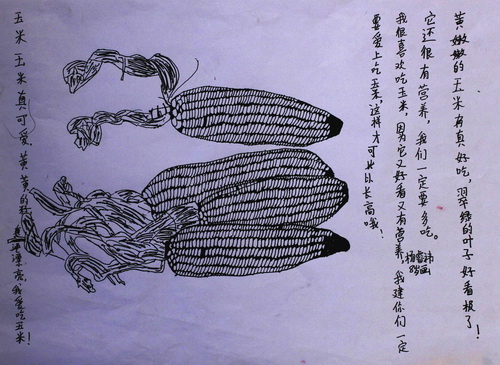 黄嫩嫩的玉米有真好吃，翠绿的叶子好看极了！
它还很有营养，我们一定要多吃。
我很喜欢吃玉米，因为它又好看又有营养，我建你们一定
要爱上吃玉米，这样才可以长高哦！
8岁画
玉米玉米真可爱，黄黄的漂亮，我爱吃玉米！